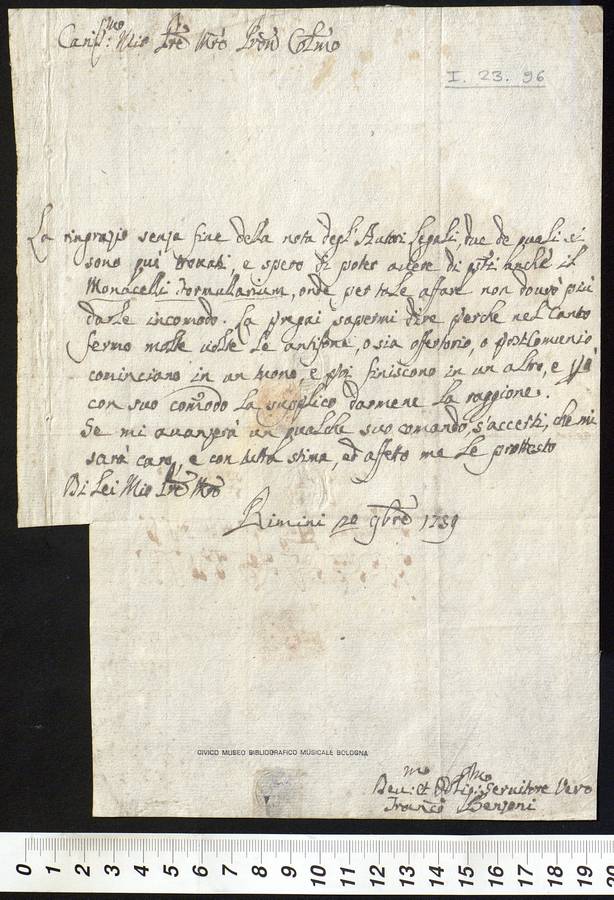 Caris.mo Mio Pre Mro Pron Colmo
I. 23. 96
La ringrazio senza fine della nota degl'Autori legali, due de quali si
sono qui trovati, e spero di poter avere di pstì anche il
Monacelli Formularium, onde per tale affare non dovrò più
darle incomodo. La pregai sapermi dire perche nel Canto
fermo molte volte le antifone, o sia offertorio, o postComunio
cominciano in un tuono, e poi finiscono in un altro, e
con suo comodo la supplico darmene la raggione.
Se mi avanzerà un qualche suo comando, s'accerti, che mi
sarà caro, e con tutta stima, ed affetto me le prottesto
Di Lei Mio Pre Mro
Rimini 20 9bre 1739
CIVICO MUSEO BIBLIOGRAFICO MUSICALE BOLOGNA
Dev.mo et Oblig.mo Servitore Vero
Franco Benzoni
0 1 2 3 4 5 6 7 8 9 10 11 12 13 14 15 16 17 18 19 20